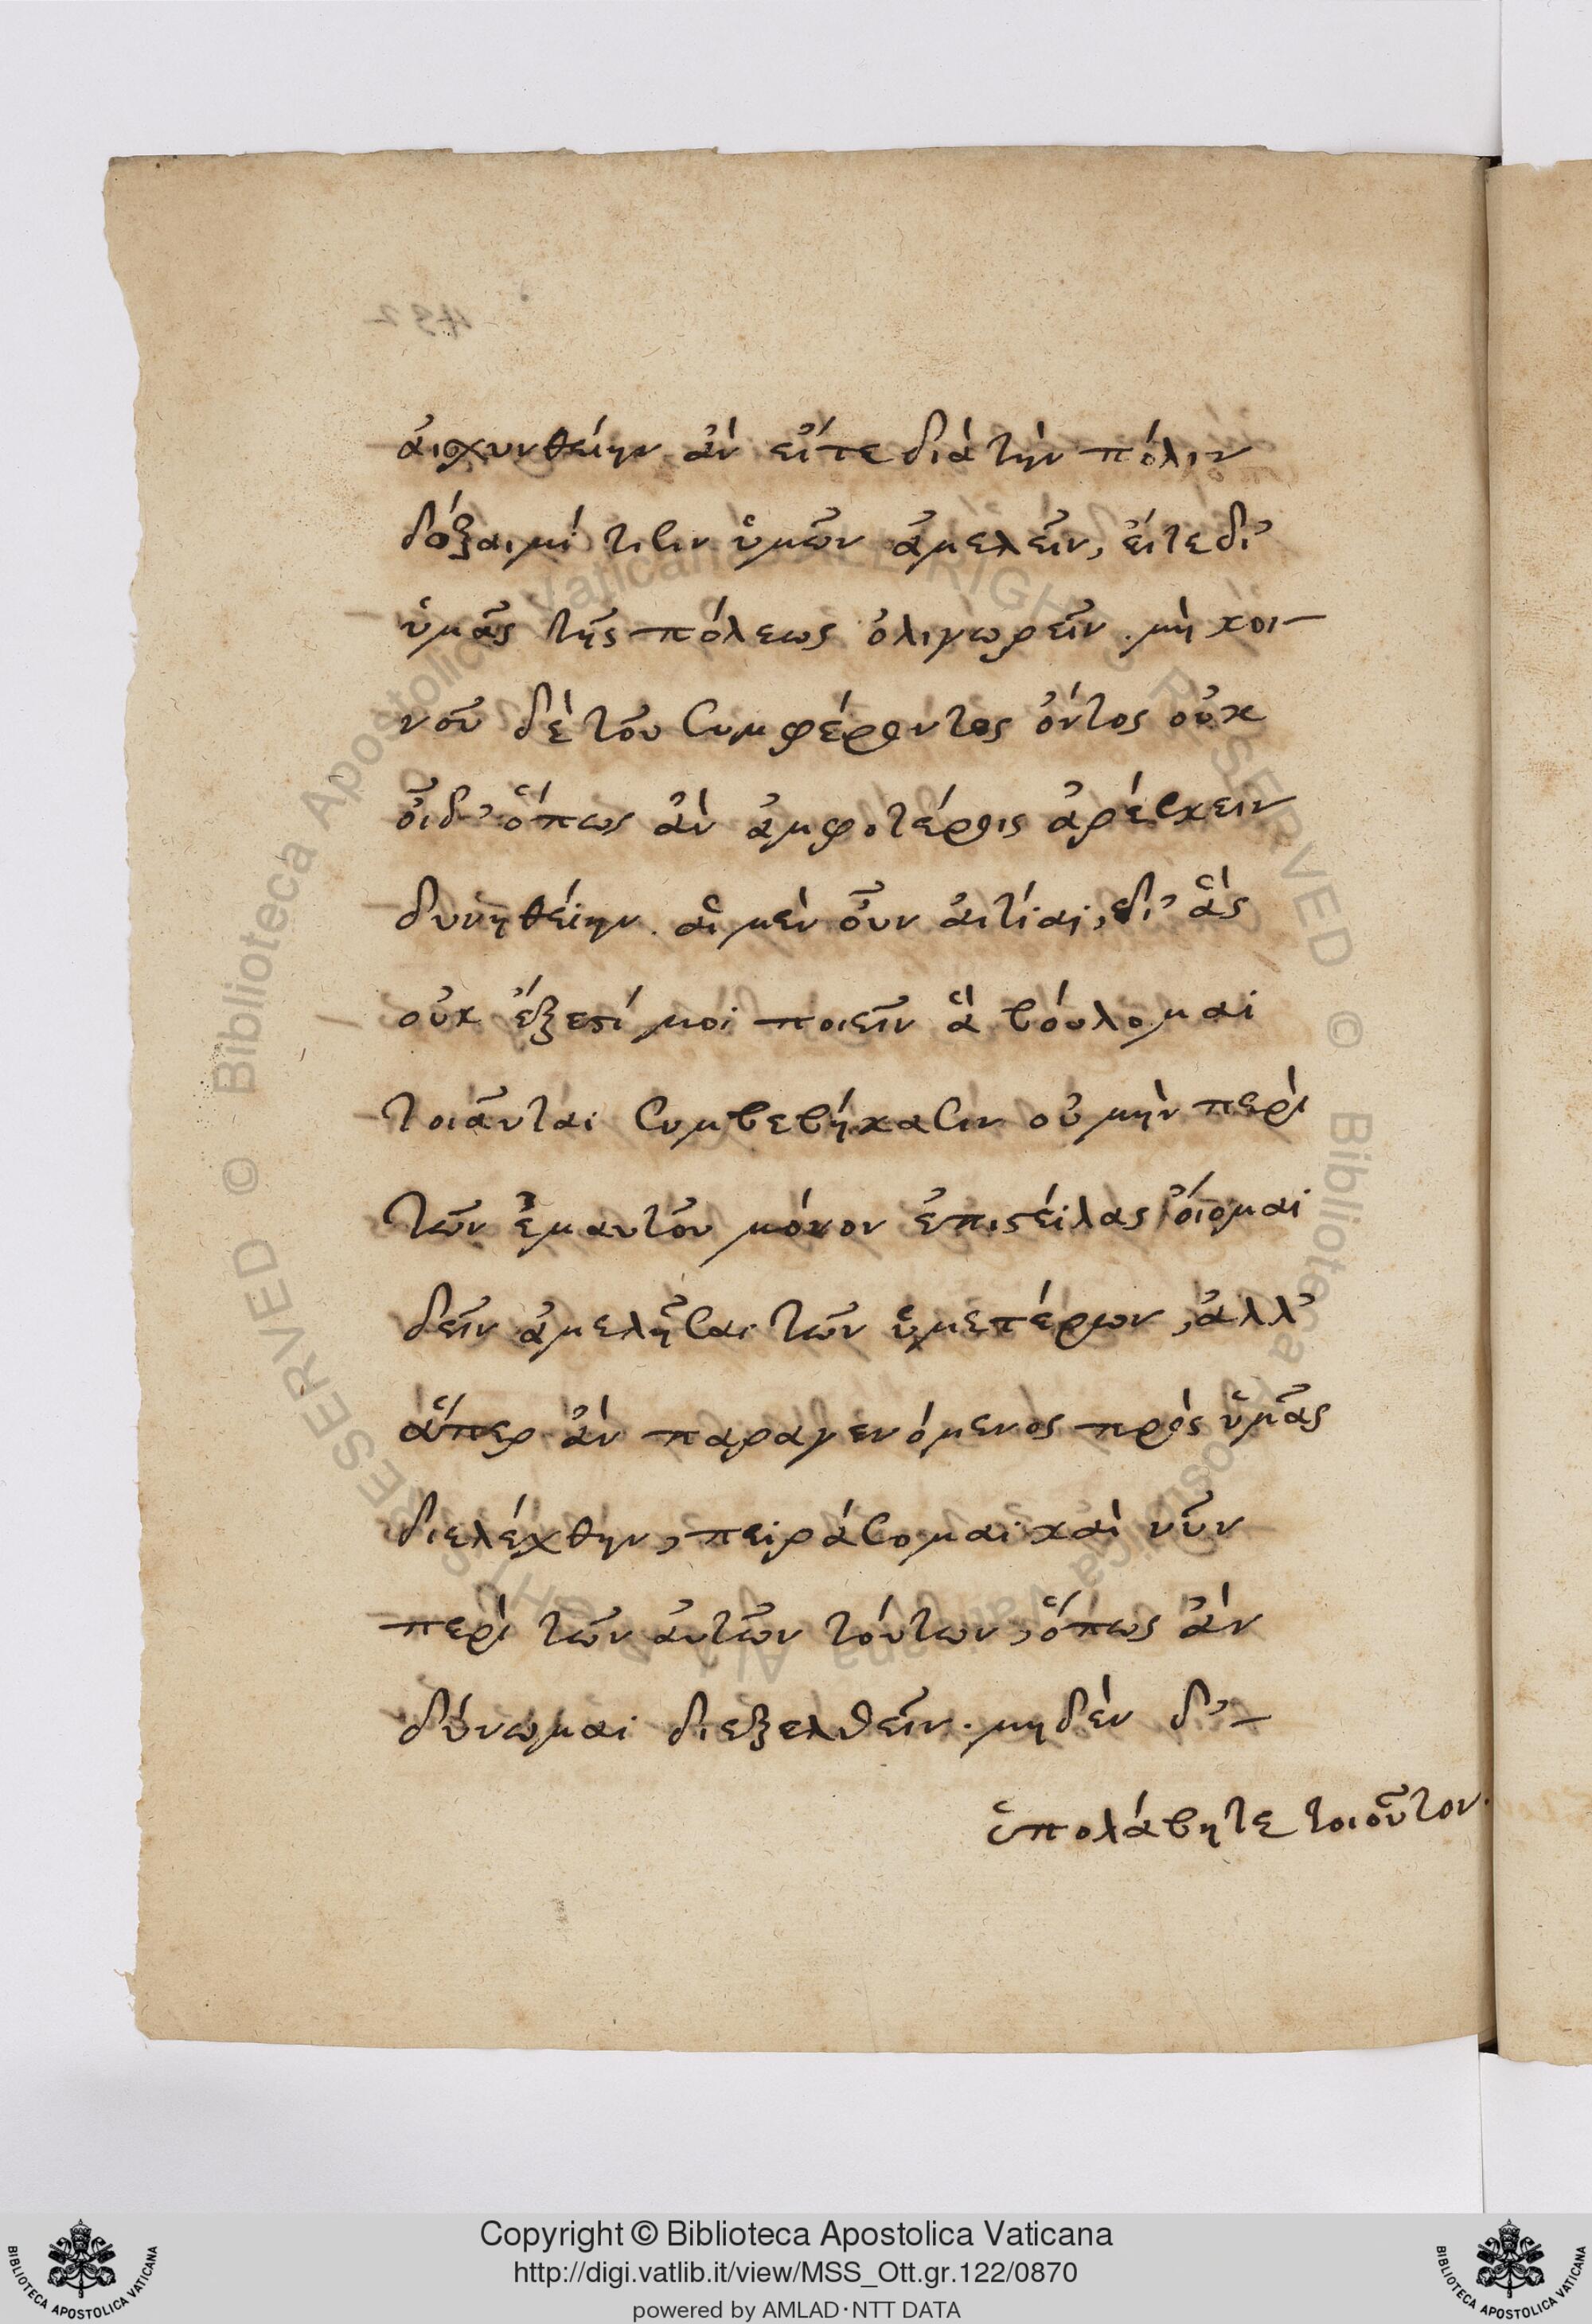 ἀισχυνθείην ἂν εἴτε διὰ τὴν πόλιν
δόξαιμί τισιν ὑμῶν ἀμελεῖν, εἴτε δι’
ὑμᾶς τῆς πόλεως ὀλιγωρεῖν. μὴ κοι-
νοῦ δὲ τοῦ συμφέροντος ὄντος οὐκ
οἶδ’ ὅπως ἂν ἀμφοτέροις ἀρέσκειν
δυνηθείην. αἱ μὲν οὖν ἀιτίαι, δι’ ἃς
οὐκ ἔξεστί μοι ποιεῖν ἃ βούλομαι
τοιαῦται συμβεβήκασιν οὐ μὴν περὶ
τῶν ἐμαυτοῦ μόνον ἐπιστείλας οἴομαι
δεῖν ἀμελῆσαι τῶν ὑμετέρων, ἀλλ’
ἅπερ ἂν παραγενόμενος πρὸς ὑμᾶς
διελέχθην, πειράσομαι καὶ νῦν
περὶ τῶν ἀυτῶν τούτων, ὅπως ἂν
δύνωμαι διεξελθεῖν. μηδὲν δ’-
ὑπολάβητε τοιοῦτον.
Copyright © Biblioteca Apostolica Vaticana
http://digi.vatlib.it/view/MSS_Ott.gr.122/0870
powered by AMLAD·NTT DATA